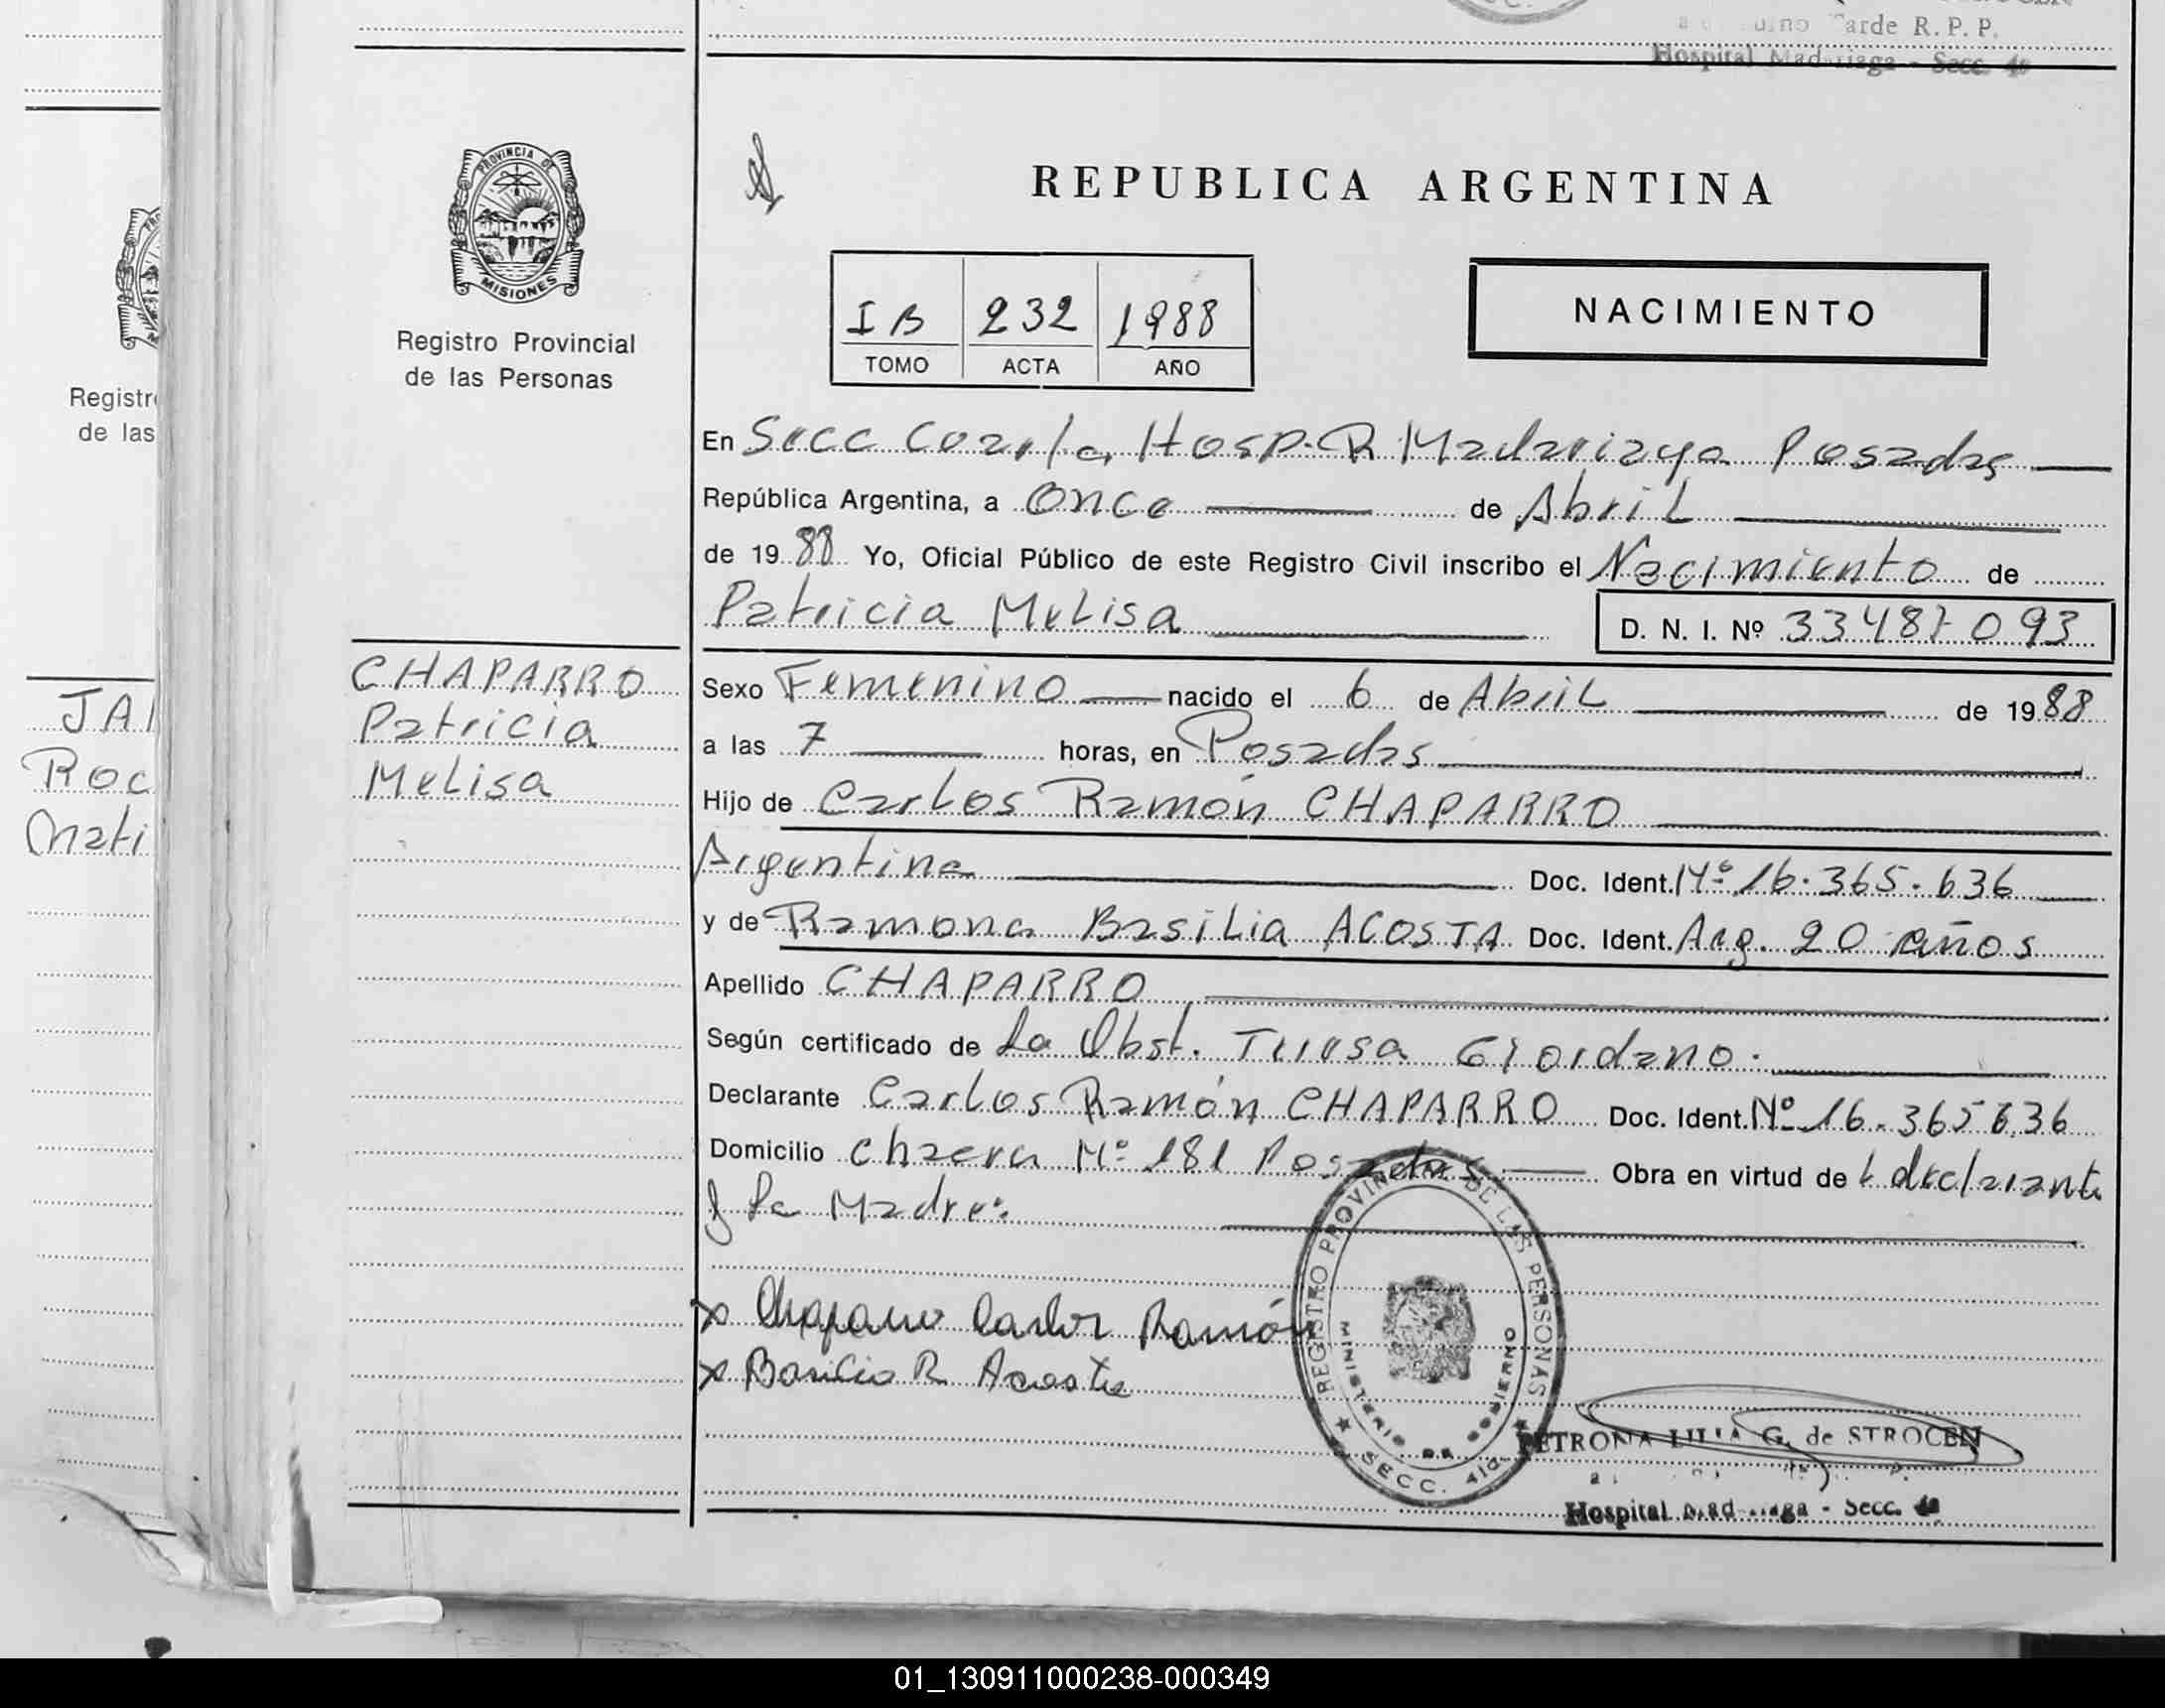 arde R. P. P.
Hospital Madariaga - Secc. 4a
PROVINCIA DE
MISIONES
Registro Provincial
de las Personas
REPUBLICA ARGENTINA
IB 232 1988
TOMO ACTA AÑO
NACIMIENTO
Registr
de las
En Secc Cuarta Hosp. R Madariaga Posadas
República Argentina, a Once de Abril
de 1988 Yo, Oficial Público de este Registro Civil inscribo el Nacimiento de
Patricia Melisa D. N. I. Nº 33487093
CHAPARRO
Patricia
Melisa
JA
Roc
Mati
Sexo Femenino nacido el 6 de Abril de 1988
a las 7 horas, en Posadas
Hijo de Carlos Ramón CHAPARRO
Argentina Doc. Ident. Nº 16.365.636
y de Ramona Basilia ACOSTA Doc. Ident. Arg. 20 años
Apellido CHAPARRO
Según certificado de La Obst. Teresa Giordano.
Declarante Carlos Ramón CHAPARRO Doc. Ident. Nº 16.365636
Domicilio Chacra Nº 181 Posadas Obra en virtud de L declarante
y la Madre.
x Chaparro Carlos Ramón
x Basilia R Acosta
REGISTRO PROVINCIAL DE LAS PERSONAS
MINISTERIO DE GOBIERNO
SECC. 4ta.
PETRONA LILIA G. de STROCEN
Hospital Madariaga - Secc. 4a
01_130911000238-000349